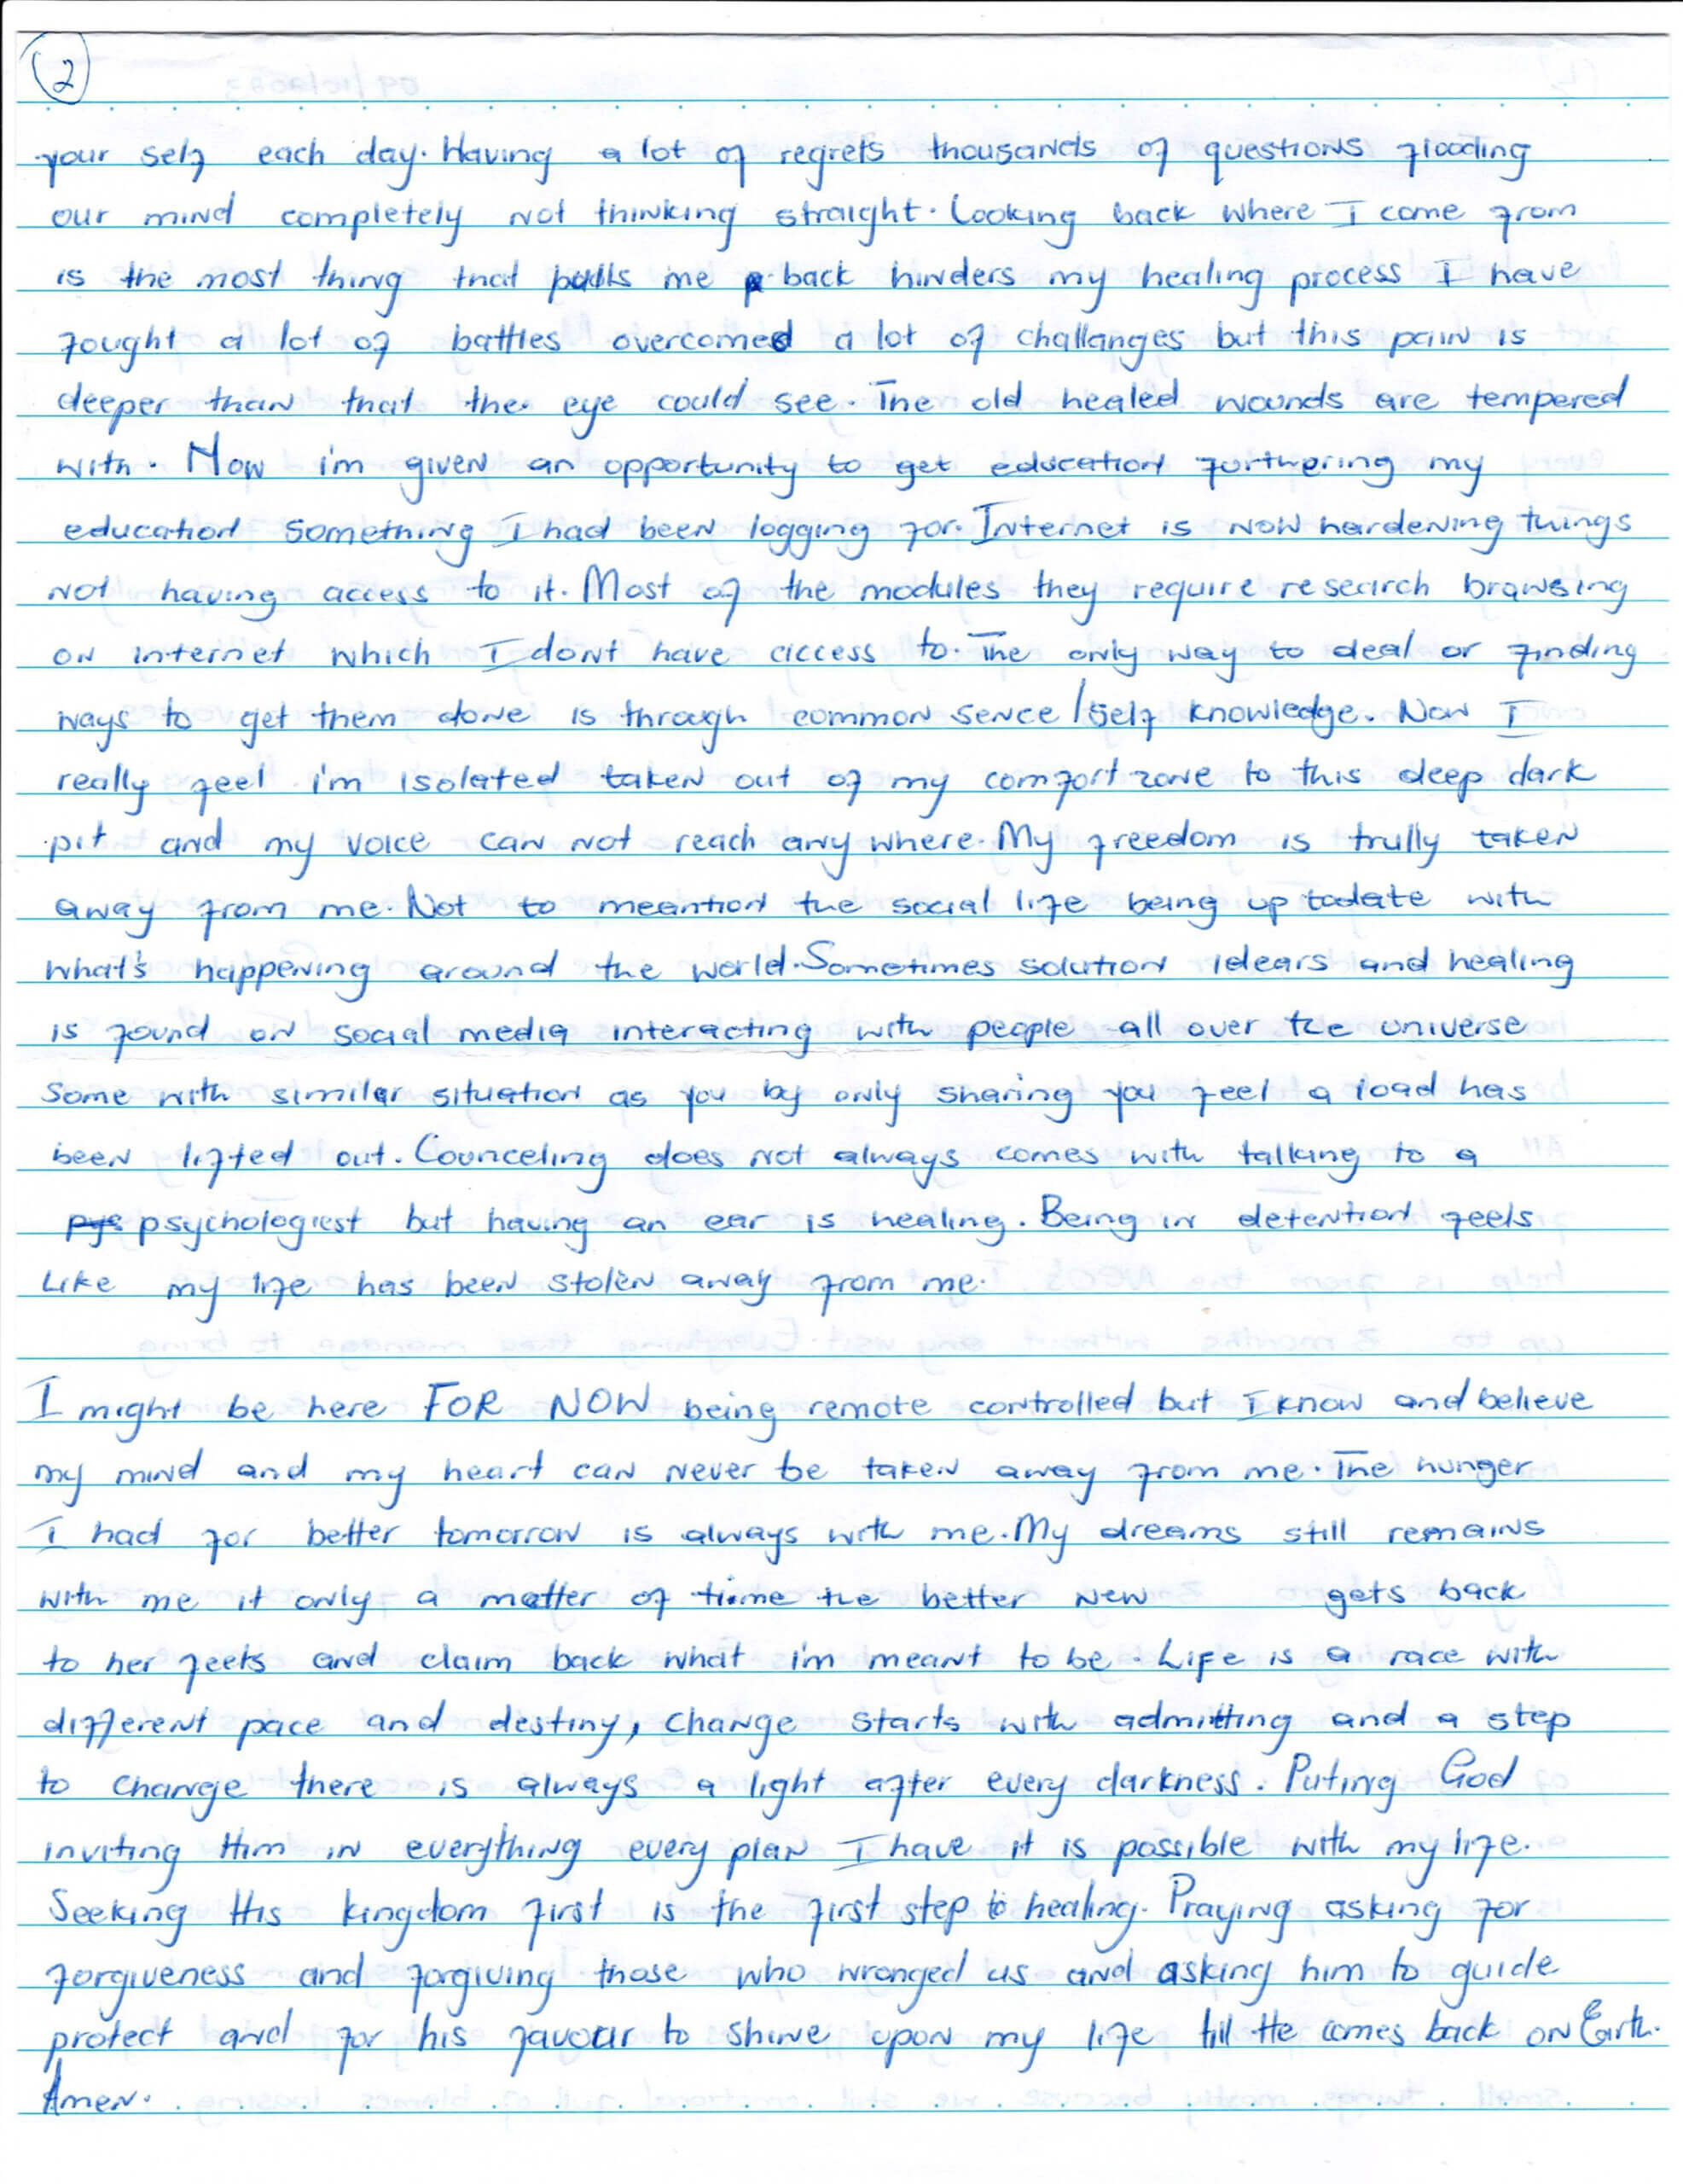 2
your self each day. Having a lot of regrets thousands of questions flooding
our mind completely not thinking straight. Looking back where I come from
is the most thing that pulls me back hinders my healing process I have
fought a lot of battles overcomed a lot of challanges but this pain is
deeper than that the eye could see. The old healed wounds are tempered
with. Now i'm given an opportunity to get education furthering my
education something I had been logging for. Internet is now hardening things
not having access to it. Most of the modules they require research browsing
on internet which I dont have access to. The only way to deal or finding
ways to get them done is through common sence / self knowledge. Now I
really feel i'm isolated taken out of my comfort zone to this deep dark
pit and my voice can not reach any where. My freedom is trully taken
away from me. Not to meantion the social life being up todate with
what's happening around the world. Sometimes solution idears and healing
is found on social media interacting with people all over the universe
some with similar situation as you by only sharing you feel a load has
been lifted out. Counceling does not always comes with talking to a
pys psychologiest but having an ear is healing. Being in detention feels
Like my life has been stolen away from me.
I might be here FOR NOW being remote controlled but I know and believe
my mind and my heart can never be taken away from me. The hunger
I had for better tomorrow is always with me. My dreams still remains
with me it only a matter of time the better new gets back
to her feets and claim back what i'm meant to be. Life is a race with
different pace and destiny, change starts with admitting and a step
to change there is always a light after every darkness. Puting God
inviting Him in everything every plan I have it is possible with my life.
Seeking His kingdom first is the first step to healing. Praying asking for
forgiveness and forgiving those who wronged us and asking him to guide
protect and for his favour to shine upon my life till He comes back on Earth.
Amen.